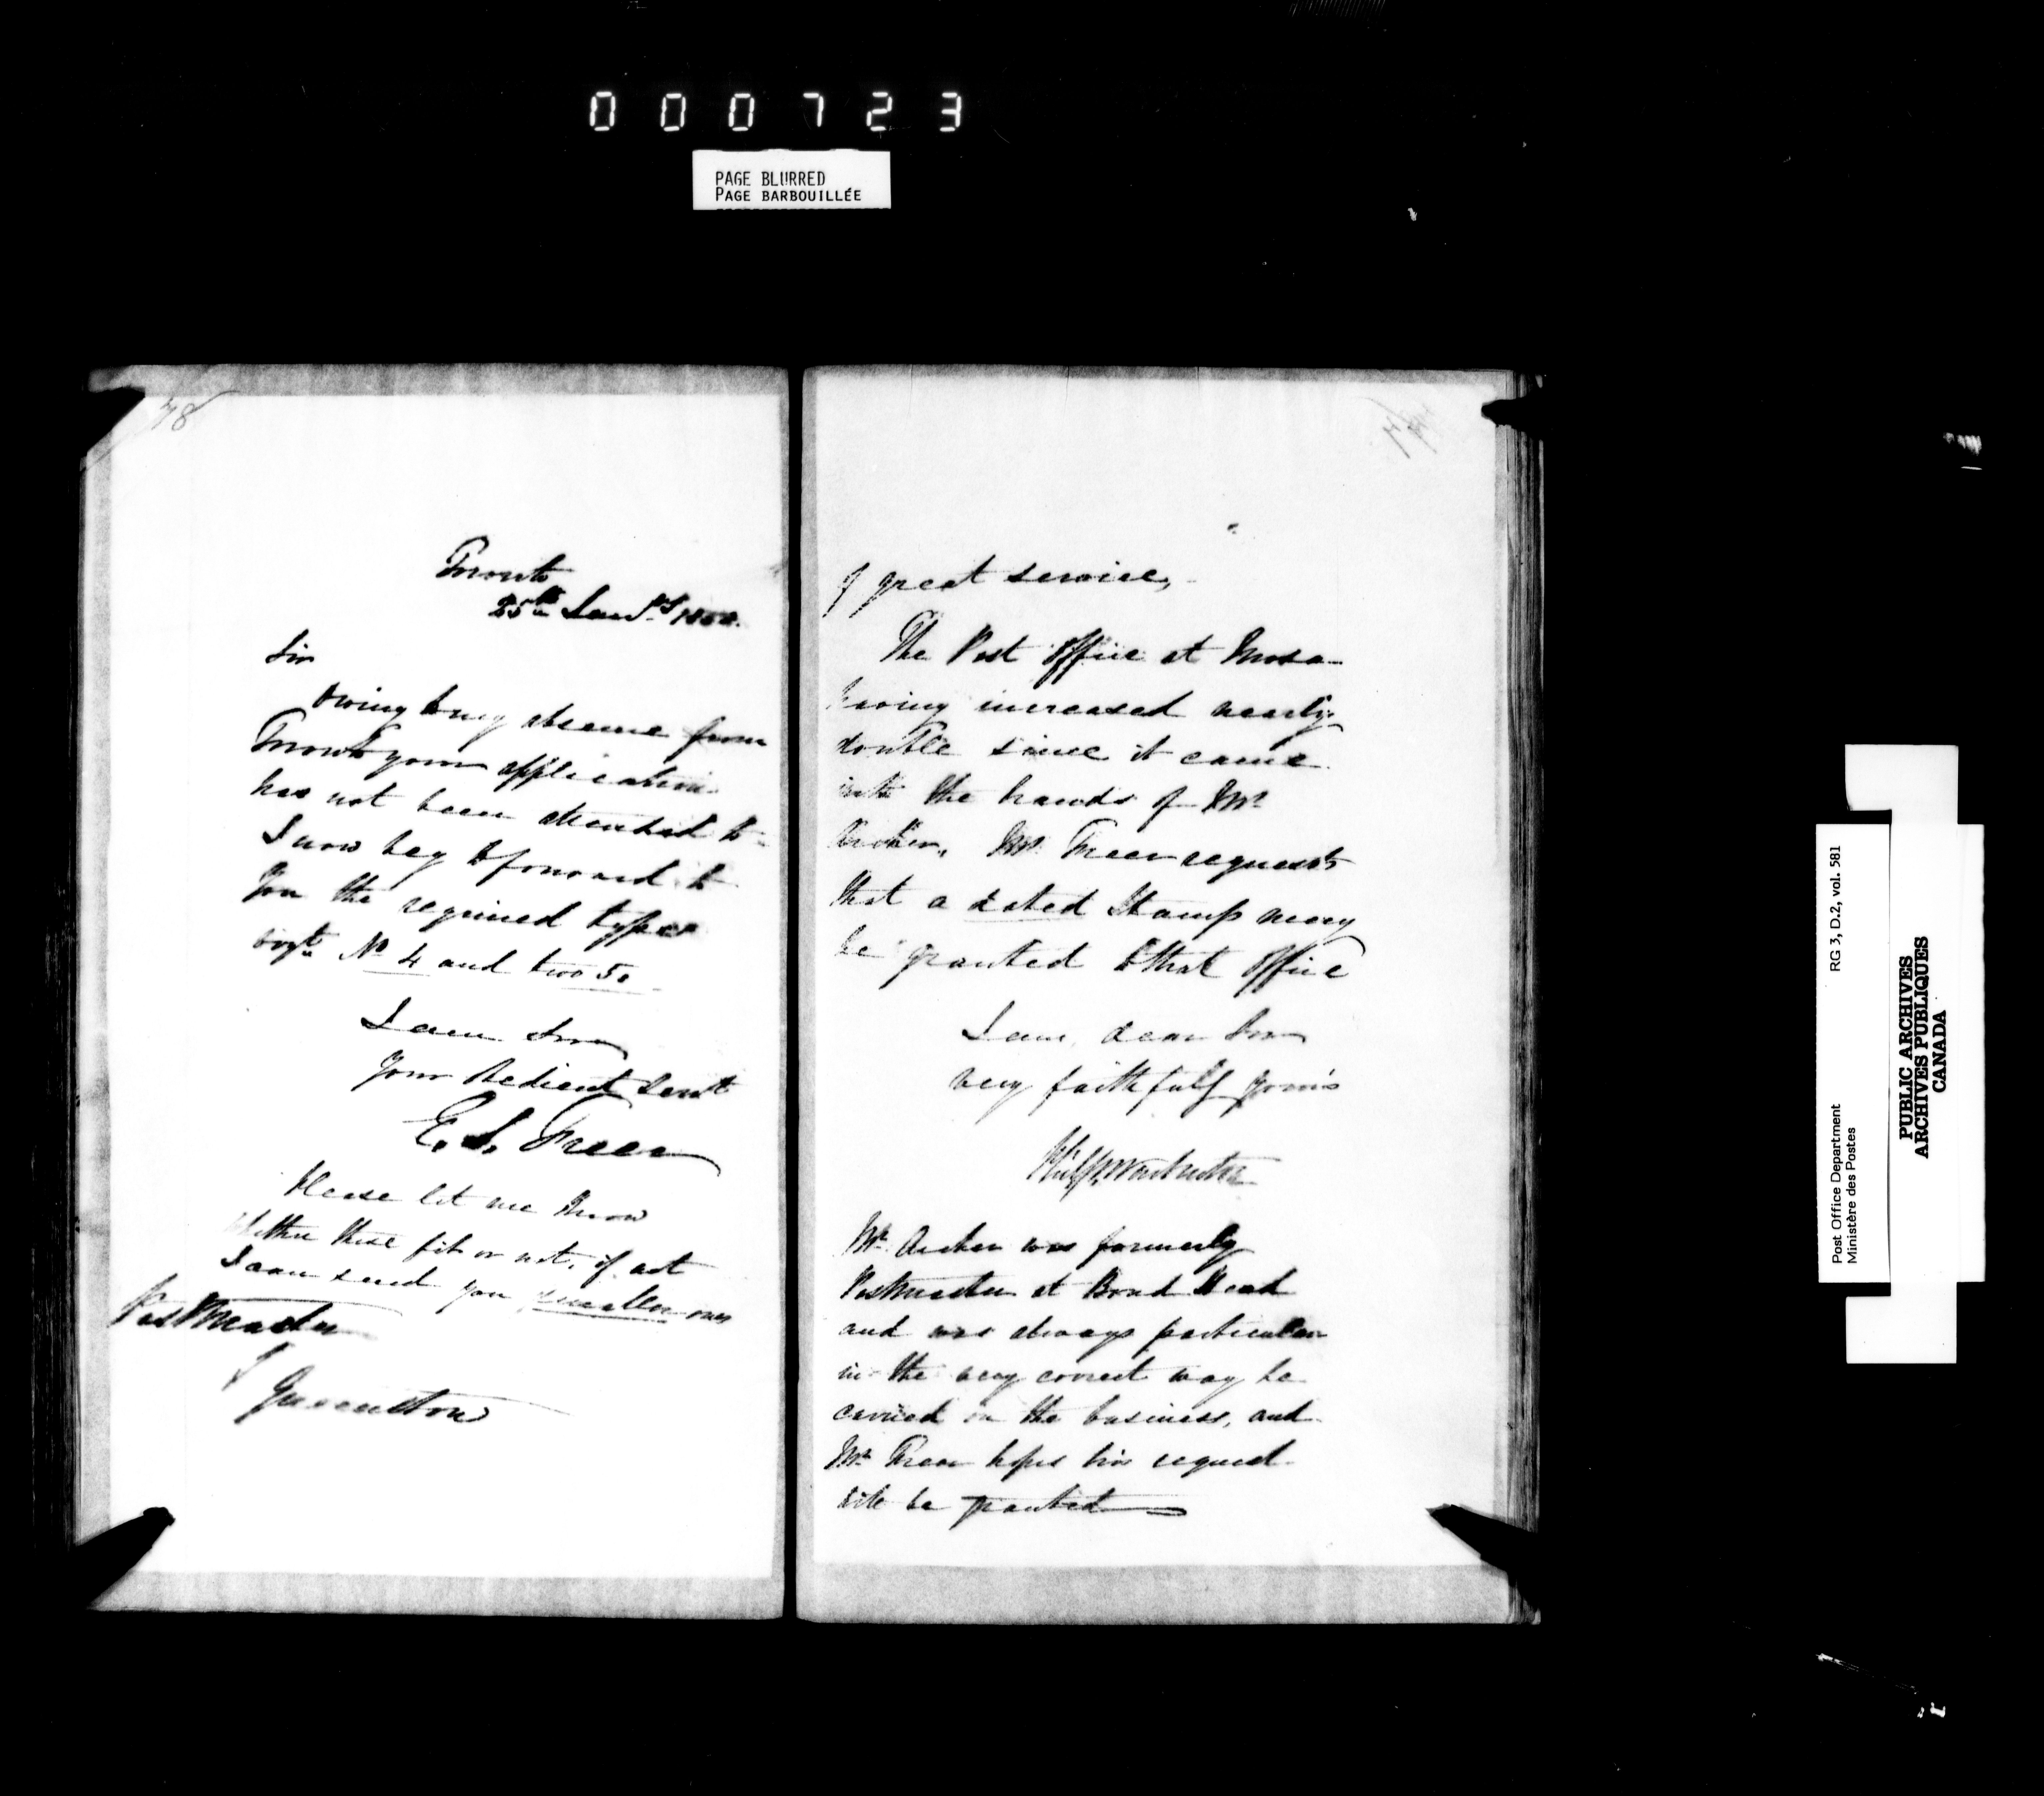 000723
PAGE BLURRED
PAGE BARBOUILLÉE
78
Toronto
25th Jany 1852.
Sir
Owing to my absence from
Toronto your application
has not been attended to
I now beg to forward to
you the required types
vizt No 4 and two 5.
I am Sir
Your Obedient Servt
E. S. Freer
Please let me know
Whether these fit or not, if not
I can send you smaller ones
Post Master
of great service,
The Post Office at Mosa
having increased nearly
double since it came
into the hands of Mr
Archer, Mr. Freer requests
that a dated Stamp may
be granted to that Office
I am, dear Sir
very faithfully yours
Mr. Archer was formerly
Postmaster at Bond Head
and was always particular
in the very correct way he
carried on the business, and
Mr. Freer hopes his request
will be granted
Post Office Department
Ministère des Postes
RG 3, D.2, vol. 581
PUBLIC ARCHIVES
ARCHIVES PUBLIQUES
CANADA